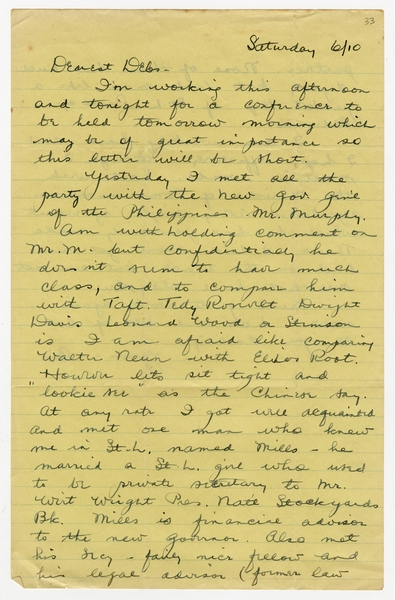 33
Saturday 6/10
Dearest Debs-
I'm working this afternoon
and tonight for a confrence to
be held tomorrow morning which
may be of great inportance so
this letter will be short.
Yesterday I met all the
party with the new Gov. Gen'l
of the Philippines Mr. Murphy.
Am withholding comment on
Mr. M. but confidentially he
doesn't seem to have much
class, and to compair him
with Taft. Tedy Rosvelt Dwight
Davis Leonard Wood or Stimson
is I am afraid like comparing
Walter Neun with Elihos Root.
"However lets sit tight and
"lookie see" as the Chinese say.
At any rate I got well acquainted
and met one man who knew
me in St. L. named Mills - he
married a St. L. girl who used
to be private secretary to Mr.
Wirt Wright Pres. Natl Stockyards
Bk. Mills is financial advisor
to the new governor. Also met
his secy - fairly nice fellow and
his legal advisor (former law